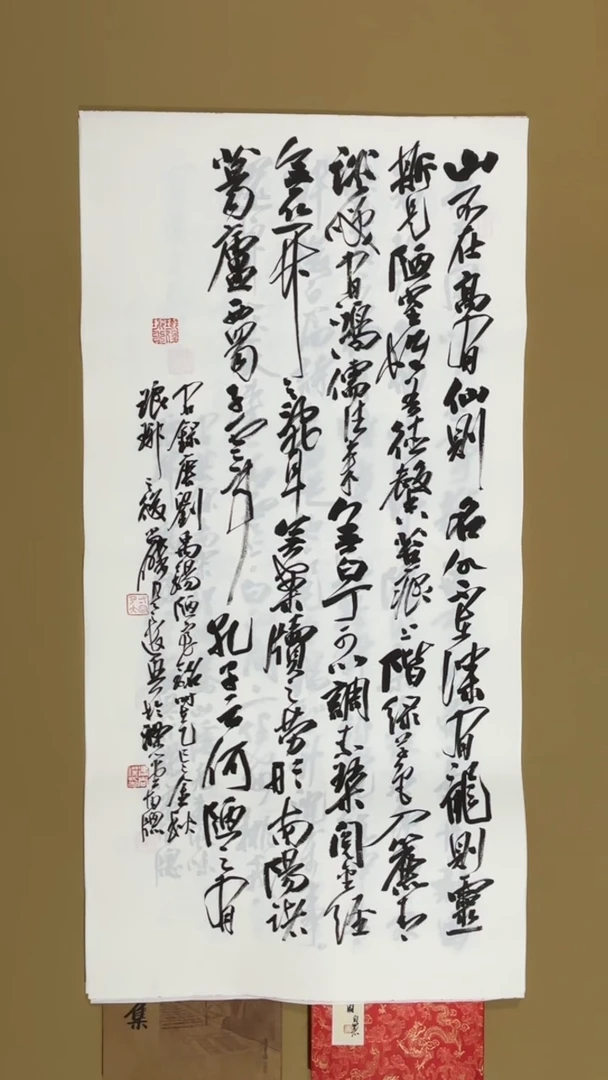 山不在高有仙則名水不在深有龍則靈
斯是陋室惟吾德馨苔痕上階綠草色入簾青
談笑有鴻儒往來無白丁可以調素琴閱金經
無絲竹之亂耳無案牘之勞形南陽諸
葛廬西蜀子雲亭孔子云何陋之有
右錄唐劉禹錫陋室銘時在乙巳之金秋
琅琊之後 於 南牕
集